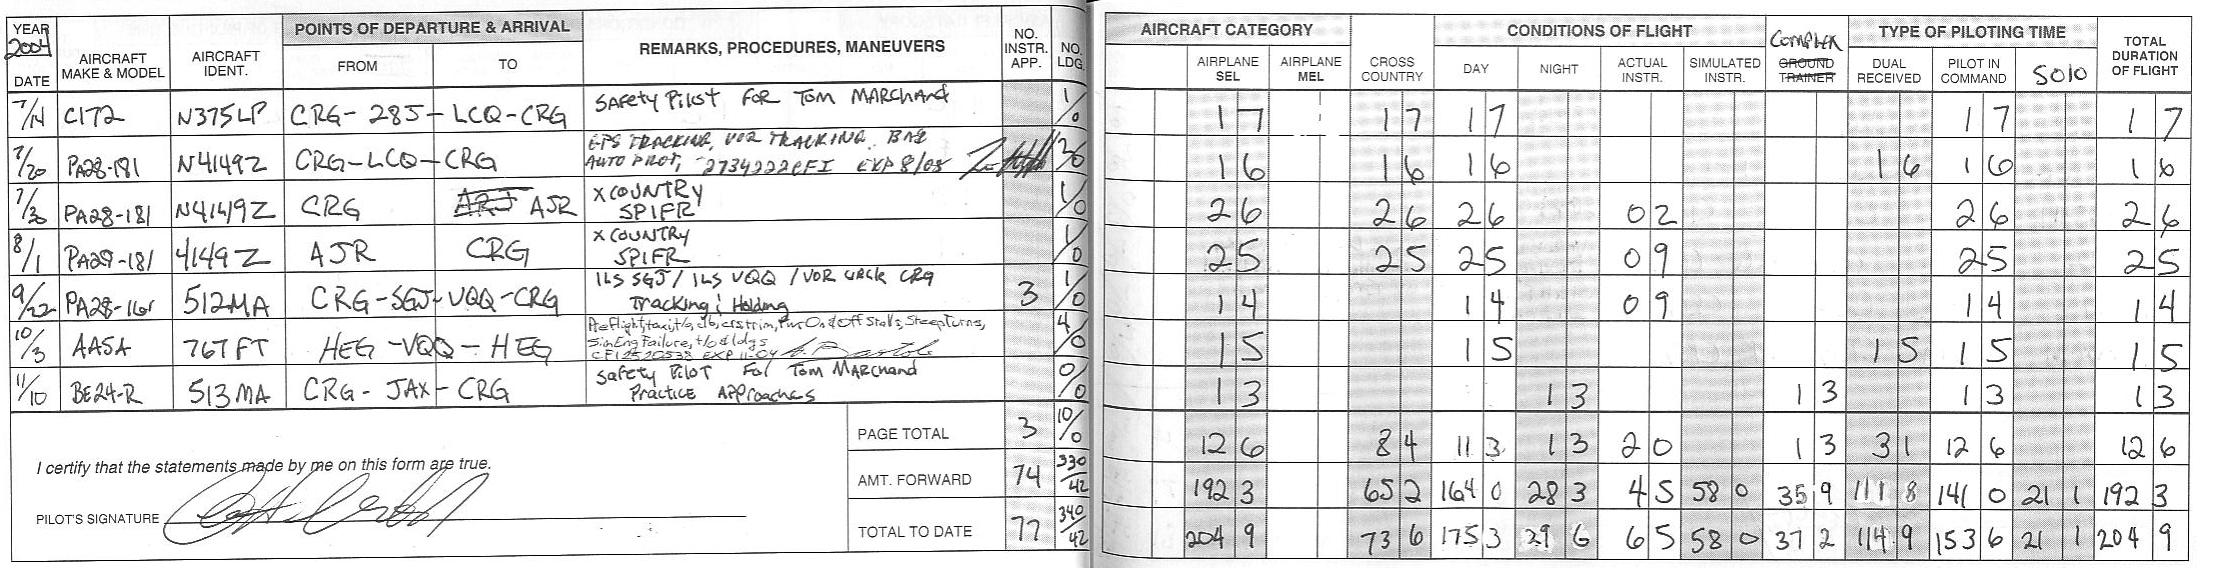 YEAR 2004 DATE
AIRCRAFT MAKE & MODEL
AIRCRAFT IDENT.
POINTS OF DEPARTURE & ARRIVAL
FROM TO
REMARKS, PROCEDURES, MANEUVERS
NO. INSTR. APP.
NO. LDG.
AIRCRAFT CATEGORY
AIRPLANE SEL
AIRPLANE MEL
CROSS COUNTRY
CONDITIONS OF FLIGHT
DAY NIGHT ACTUAL INSTR. SIMULATED INSTR.
COMPLEX GROUND TRAINER
TYPE OF PILOTING TIME
DUAL RECEIVED PILOT IN COMMAND SOLO
TOTAL DURATION OF FLIGHT
7/14 C172 N375LP CRG - 28J - LCQ - CRG SAFETY PILOT FOR TOM MARCHAND 1/0 1 7 1 7 1 7 1 7 1 7
7/20 PA28-181 N4149Z CRG-LCQ-CRG GPS TRACKING, VOR TRACKING, BAI
AUTO PILOT, 2734222CFI EXP 8/05 2/0 1 6 1 6 1 6 1 6 1 6 1 6
7/30 PA28-181 N4149Z CRG ARJ AJR X COUNTRY
SPIFR 1/0 2 6 2 6 2 6 0 2 2 6 2 6
8/1 PA28-181 4149Z AJR CRG X COUNTRY
SPIFR 1/0 2 5 2 5 2 5 0 9 2 5 2 5
9/22 PA28-161 512MA CRG-SGJ-VQQ-CRG ILS SGJ / ILS VQQ / VOR CRG
Tracking & Holding 3 1/0 1 4 1 4 0 9 1 4 1 4
10/3 AA5A 767FT HEG - VQQ - HEG Preflight, taxi, t/o, clb, crs trim, Pwr On & Off Stalls, Steep Turns,
Sim Eng Failure, t/o & ldgs
CFI 2520538 EXP 11-04 4/0 1 5 1 5 1 5 1 5 1 5
11/10 BE24-R 513MA CRG - JAX - CRG Safety Pilot For Tom Marchand
Practice Approaches 0/0 1 3 1 3 1 3 1 3 1 3
PAGE TOTAL 3 10/0 12 6 8 4 11 3 1 3 2 0 1 3 3 1 12 6 12 6
I certify that the statements made by me on this form are true.
AMT. FORWARD 74 330/42 192 3 65 2 164 0 28 3 4 5 58 0 35 9 111 8 141 0 21 1 192 3
PILOT'S SIGNATURE
TOTAL TO DATE 77 340/42 204 9 73 6 175 3 29 6 6 5 58 0 37 2 114 9 153 6 21 1 204 9